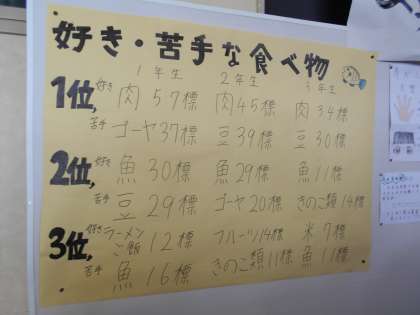 好き・苦手な食べ物
1年生 2年生 3年生
1位, 好き 肉 57標 肉 45標 肉 34標
苦手 ゴーヤ 37標 豆 39標 豆 30標
2位, 好き 魚 30標 魚 29標 魚 11標
苦手 豆 29標 ゴーヤ 20標 きのこ類 14標
3位, 好き ラーメン ご飯 12標 フルーツ 14標 米 7標
苦手 魚 16標 きのこ類 11標 魚 11標